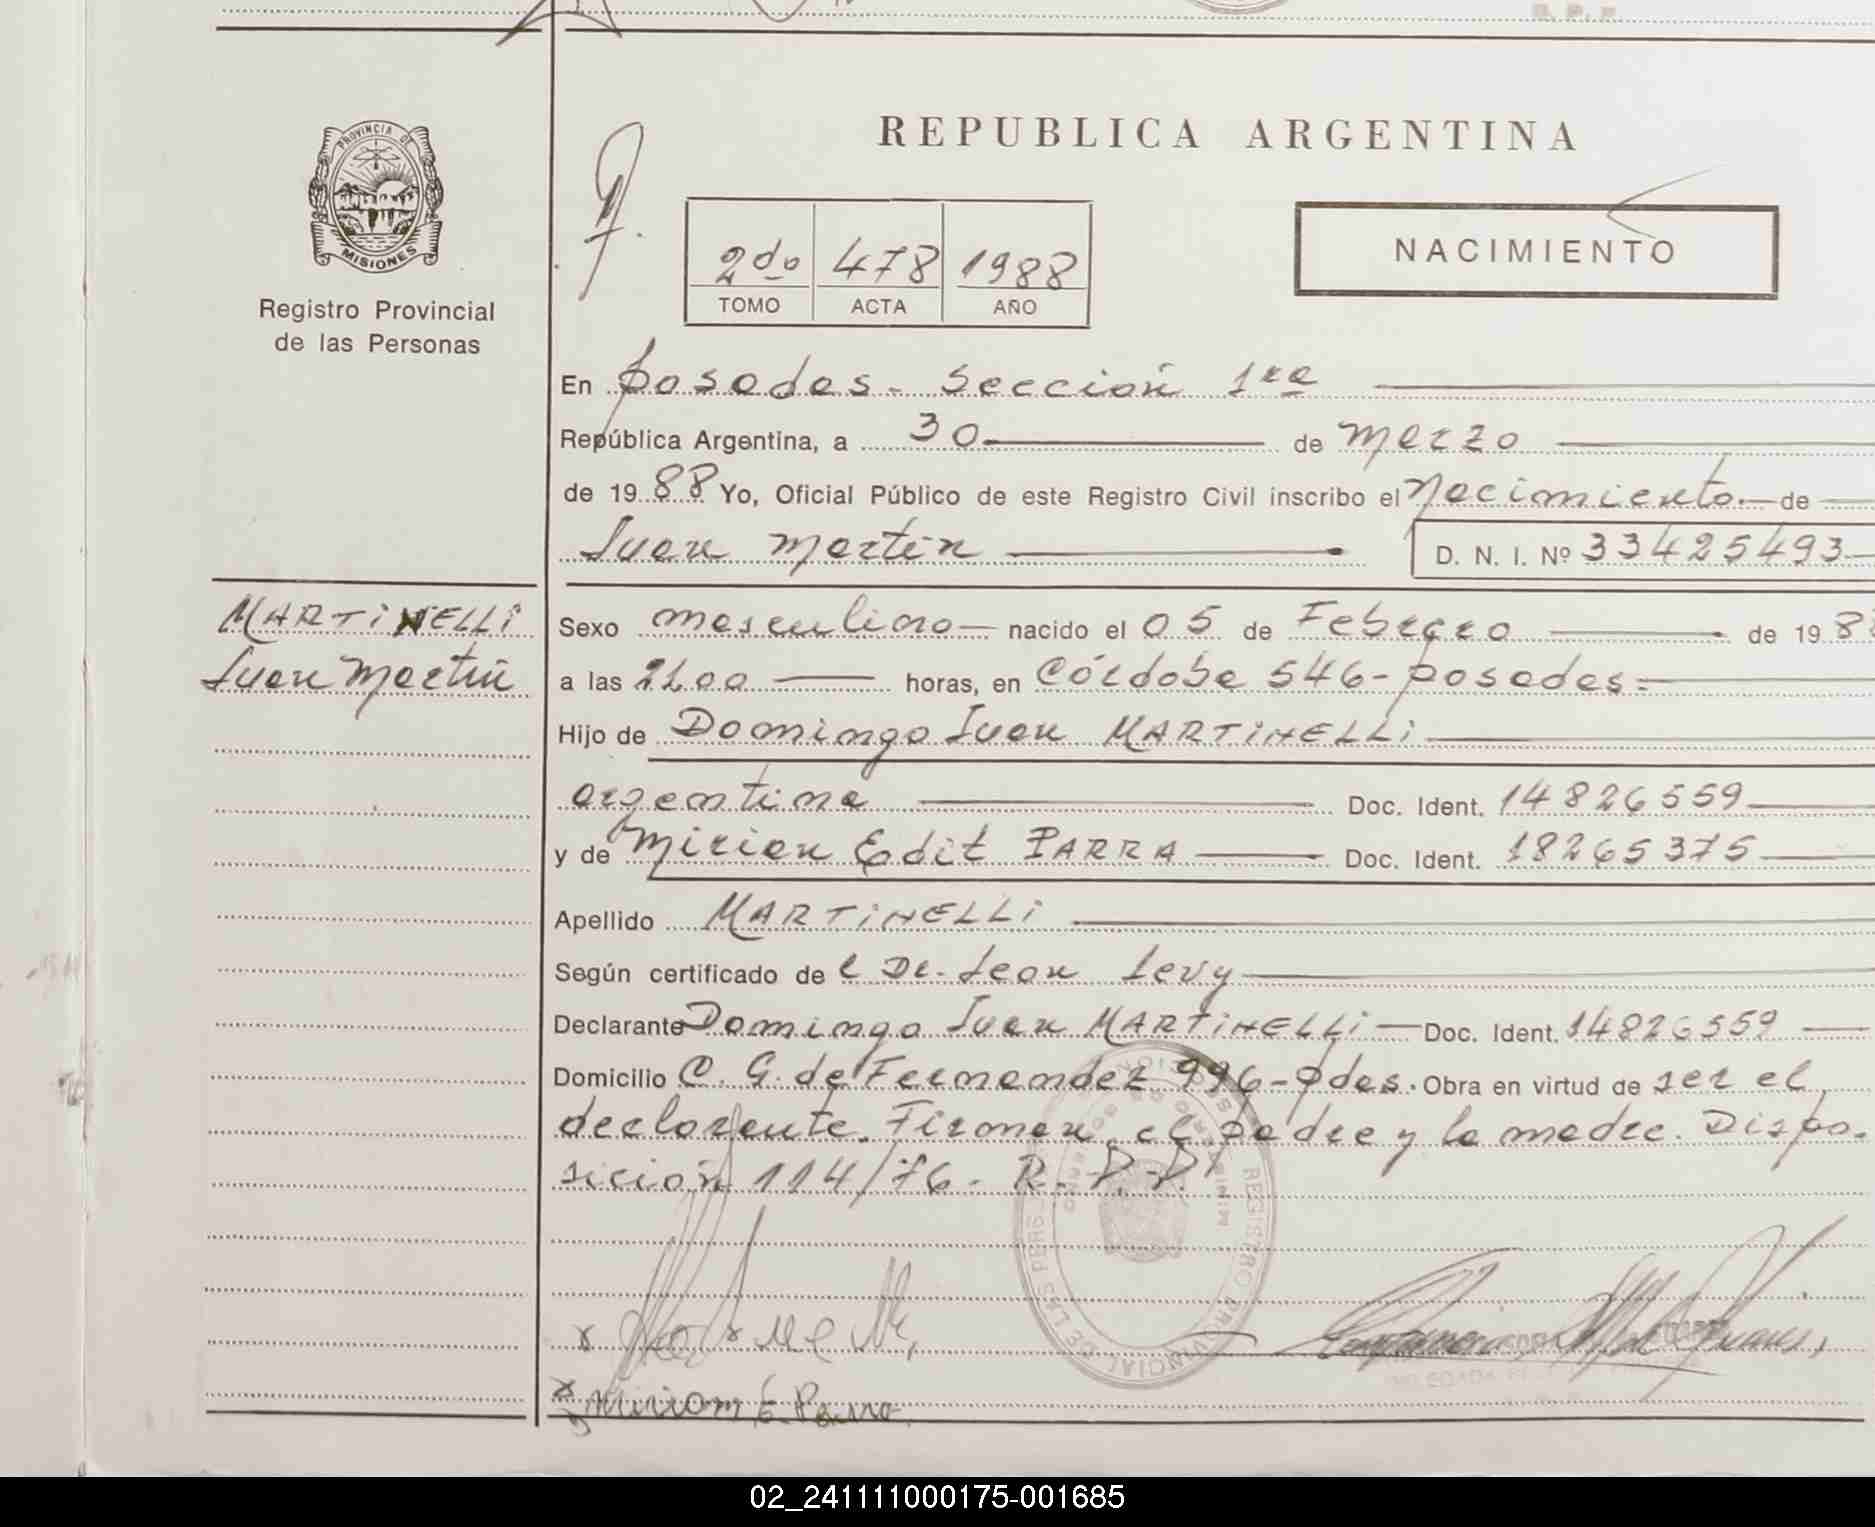 PROVINCIA DE
MISIONES
Registro Provincial
de las Personas
REPUBLICA ARGENTINA
2do 478 1988
TOMO ACTA AÑO
NACIMIENTO
En Posadas - Sección 1ra
República Argentina, a 30 de Marzo
de 1988 Yo, Oficial Público de este Registro Civil inscribo el Nacimiento de
Juan Martín D. N. I. Nº 33425493
MARTINELLI
Juan Martín
Sexo masculino nacido el 05 de Febrero de 198
a las horas, en Córdoba 546 - Posadas
Hijo de Domingo Juan MARTINELLI
argentina Doc. Ident. 14826559
y de Mirian Edit PARRA Doc. Ident. 18265375
Apellido MARTINELLI
Según certificado de l Dr. Leon Levy
Declarante Domingo Juan MARTINELLI Doc. Ident. 14826559
Domicilio C. G. de Fernandez 996 - Pdas. Obra en virtud de ser el
declarante. Firman el padre y la madre. Dispo-
sición 114/76. R.P.P.
REGISTRO PROVINCIAL DE LAS PERS
Miriam E. Parra
02_241111000175-001685